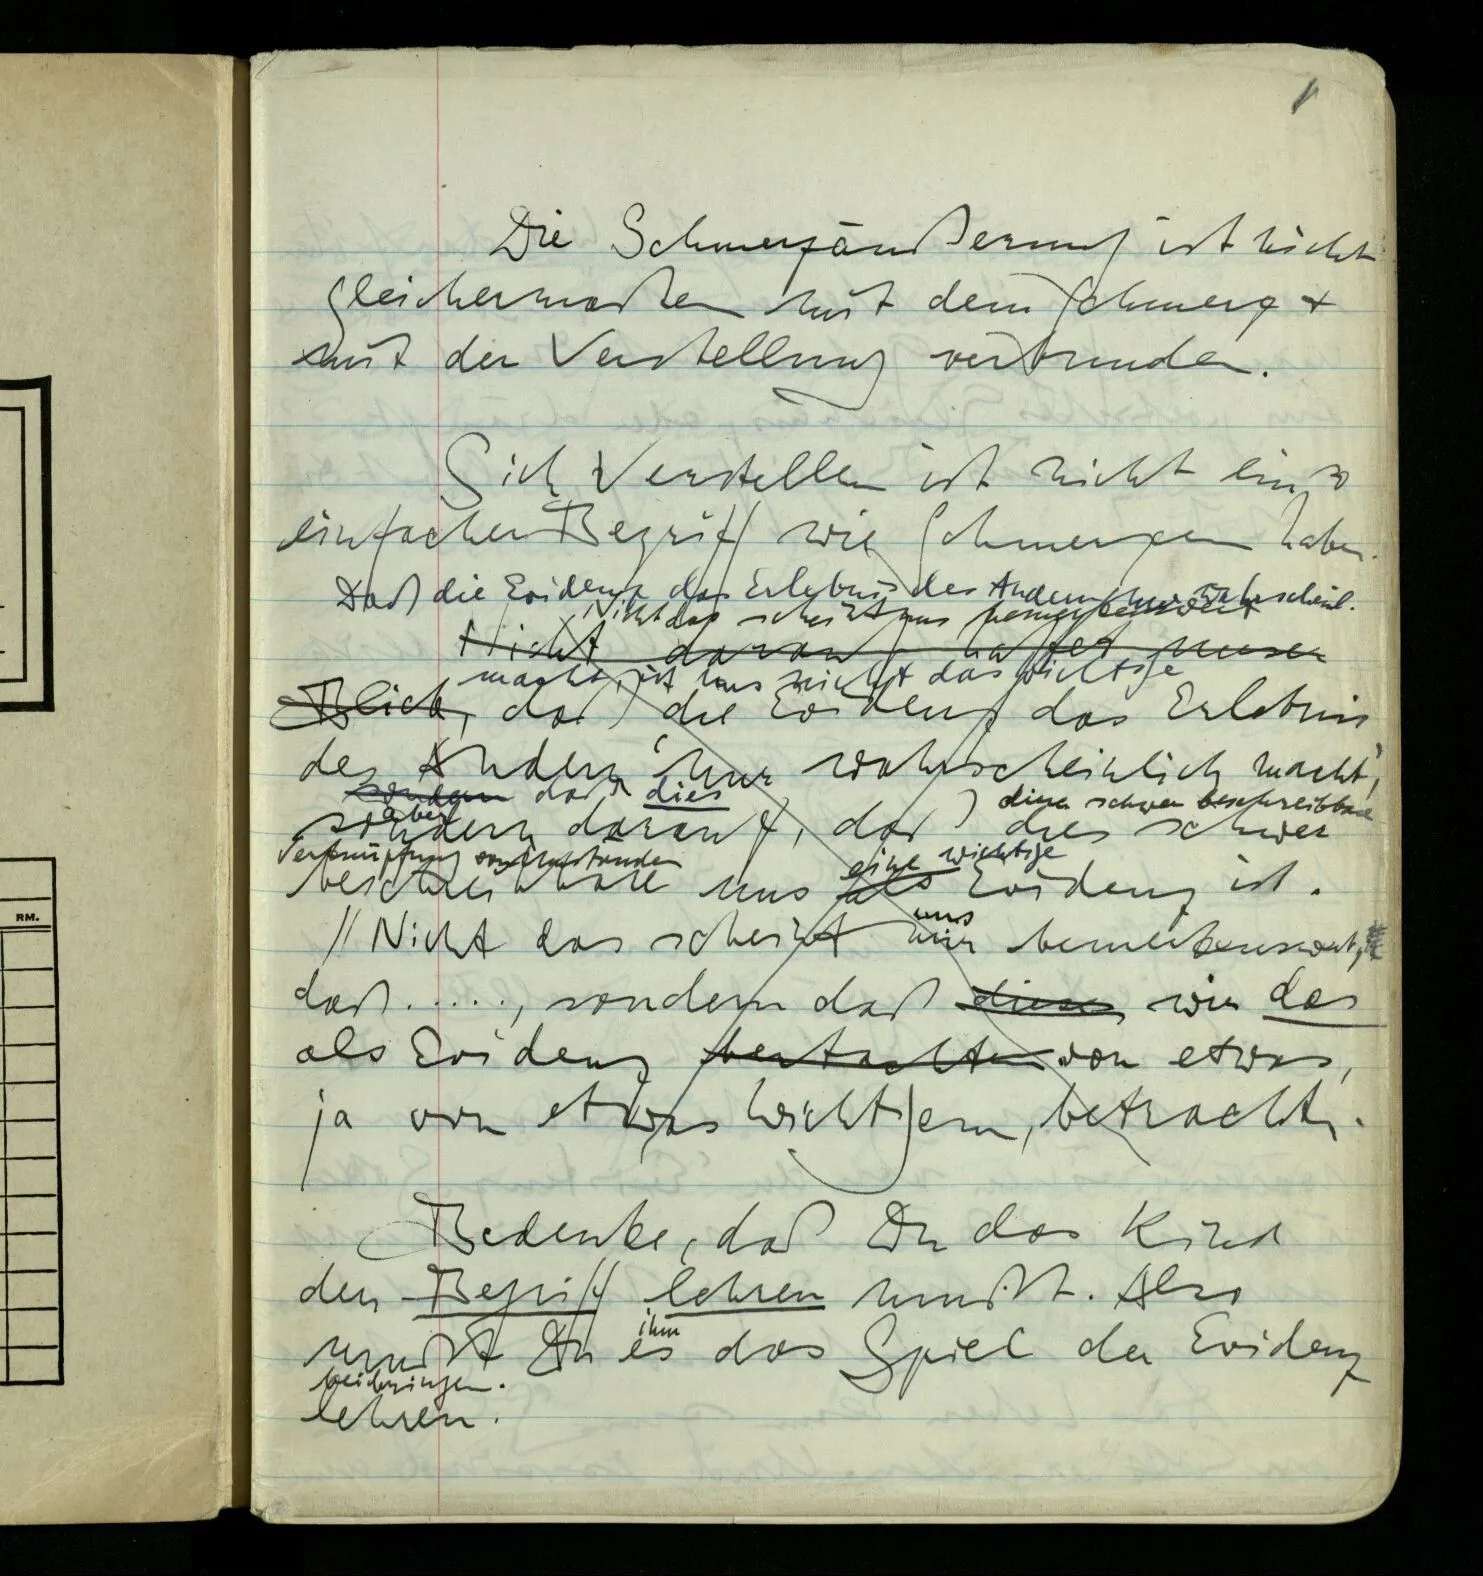 1
Die Schmerzäußerung ist nicht
gleichermaßen mit dem Schmerz +
mit der Verstellung verbunden.
Sich Verstellen ist nicht ein so
einfacher Begriff wie Schmerzen haben.
Daß die Evidenz das Erlebnis des Andern nur wahrscheinl.
Nicht das scheint uns bemerkenswert
Nicht darauf haftet unser
macht, ist uns nicht das wichtige
Blick, daß die Evidenz das Erlebnis
des Andern ‘nur wahrscheinlich macht’,
sondern daß dies diese schwer beschreibbare
aber
sondern darauf, daß dies schwer
Verknüpfung von Umständen eine wichtige
beschreibbare uns als Evidenz ist.
uns
// Nicht das scheint mir bemerkenswert,
daß....., sondern daß dieses wir das
als Evidenz betrachten von etwas,
ja von etwas Wichtigem, betrachten.
Bedenke, daß Du das Kind
den Begriff lehren mußt. Also
ihm
mußt Du es das Spiel der Evidenz
beibringen.
lehren.
RM.